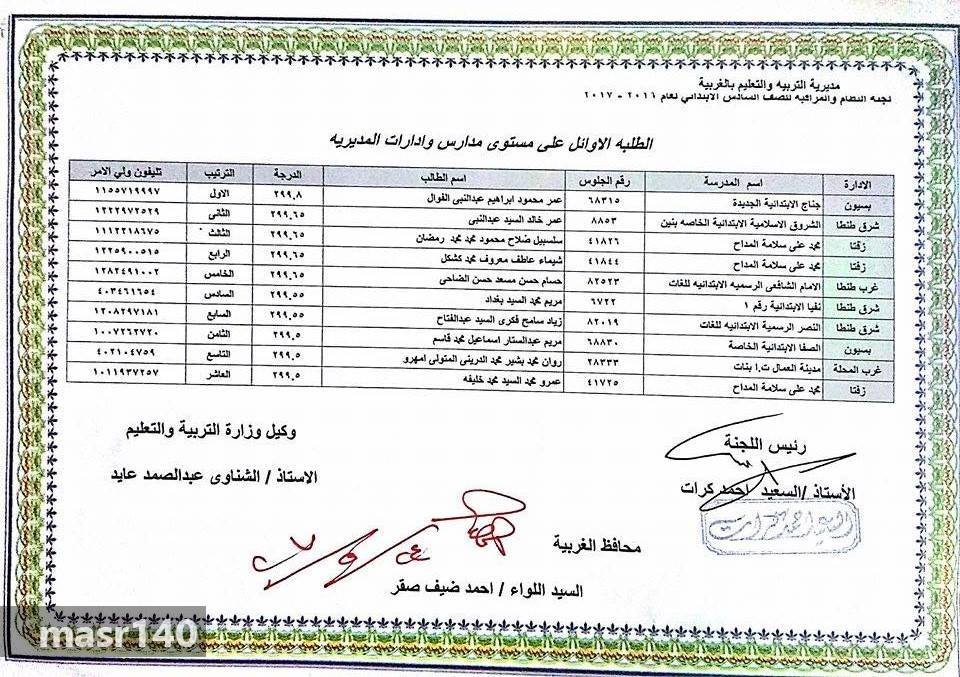 مديرية التربيه والتعليم بالغربية
لجنة النظام والمراقبة للصف السادس الابتدائي لعام ٢٠١٦ - ٢٠١٧
الطلبه الاوائل على مستوى مدارس وادارات المديريه
الادارة اسم المدرسة رقم الجلوس اسم الطالب الدرجة الترتيب تليفون ولي الامر
بسيون جناج الابتدائية الجديدة ٦٨٣١٥ عمر محمود ابراهيم عبدالنبى الفوال ٢٩٩.٨ الاول ١١٥٥٧١٩٩٩٧
شرق طنطا الشروق الاسلامية الابتدائية الخاصه بنين ٨٨٥٣ عمر خالد السيد عبدالنبى ٢٩٩.٦٥ الثانى ١٢٢٢٩٧٢٥٢٩
زفتا محمد على سلامة المداح ٤١٨٢٦ سلسبيل صلاح محمود محمد محمد رمضان ٢٩٩.٦٥ الثالث ١١١٢٢١٨٦٧٥
زفتا محمد على سلامة المداح ٤١٨٤٤ شيماء عاطف معروف محمد كشكل ٢٩٩.٦٥ الرابع ١٢٢٥٩٠٠٥١٥
غرب طنطا الامام الشافعى الرسميه الابتدائيه للغات ٨٢٥٢٣ حسام حسن مسعد حسن الضاحى ٢٩٩.٦٥ الخامس ١٢٨٢٤٩١٠٠٢
شرق طنطا نفيا الابتدائية رقم ١ ٦٧٢٢ مريم محمد السيد بغداد ٢٩٩.٥٥ السادس ٤٠٣٤٦١٦٥٤
شرق طنطا النصر الرسمية الابتدائيه للغات ٨٢٠١٩ زياد سامح فكرى السيد عبدالفتاح ٢٩٩.٥٥ السابع ١٢٠٨٢٩٧١٨١
بسيون الصفا الابتدائية الخاصة ٦٨٨٣٠ مريم عبدالستار اسماعيل محمد قاسم ٢٩٩.٥ الثامن ١٠٠٧٢٦٢٧٢٠
غرب المحلة مدينة العمال ت.ا بنات ٢٨٣٣٣ روان محمد بشير محمد الدرينى المتولى امهرو ٢٩٩.٥ التاسع ٤٠٢١٠٤٧٥٩
زفتا محمد على سلامة المداح ٤١٧٢٥ عمرو محمد السيد محمد خليفه ٢٩٩.٥ العاشر ١٠١١٩٣٧٢٥٧
رئيس اللجنة
الأستاذ /السعيد احمد كرات
وكيل وزارة التربية والتعليم
الاستاذ / الشناوى عبدالصمد عايد
محافظ الغربية
السيد اللواء / احمد ضيف صقر
masr140